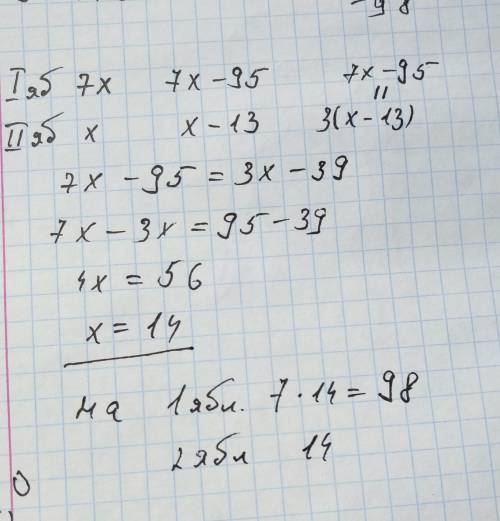 98
I яб 7x 7x - 95 7x - 95
||
II яб x x - 13 3(x - 13)
7x - 95 = 3x - 39
7x - 3x = 95 - 39
4x = 56
x = 14
на 1 ябл. 7 · 14 = 98
2 ябл 14
0